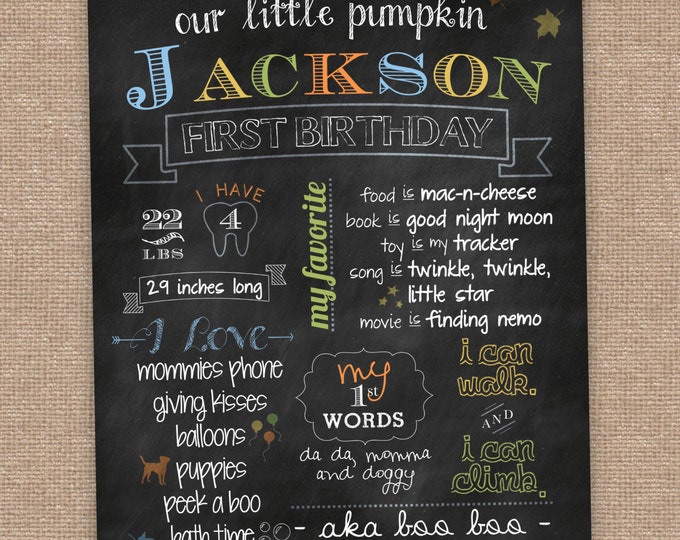 our little pumpkin
JACKSON
FIRST BIRTHDAY
I HAVE
4
22
LBS
29 inches long
my favorite
food is mac-n-cheese
book is good night moon
toy is my tracker
song is twinkle, twinkle,
little star
movie is finding nemo
I Love
mommies phone
giving kisses
balloons
puppies
peek a boo
bath time
my
1st
WORDS
da da, momma
and doggy
i can
walk.
AND
i can
climb.
- aka boo boo -